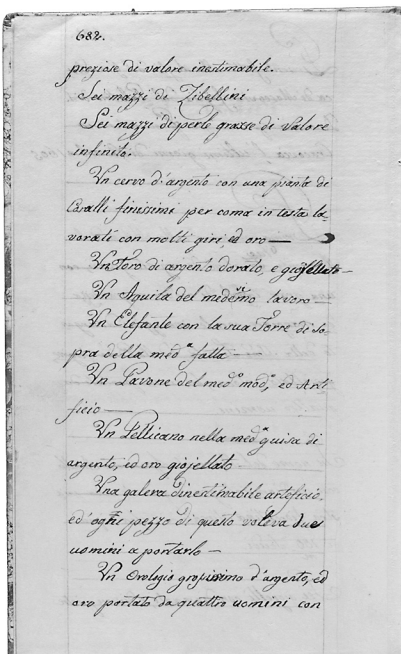 682.
preziose di valore inestimabile.
Sei mazzi di Zibellini
Sei mazzi di perle grosse di valore
infinito.
Un cervo d'argento con una pianta di
Coralli finissimi per corna in testa la-
vorati con molti giri ed oro —
Un Toro di argento dorato, e giojellato —
Un Aquila del medemo lavoro
Un Elefante con la sua Torre di so
pra della med.a fatta —
Un Pavone del med.o mod.o, ed Arti
ficio —
Un Pellicano nella med.a guisa di
argento, ed oro giojellato
Una galera d'inestimabile artificio,
ed ogni pezzo di questo voleva due
uomini a portarlo —
Un Orologio grossissimo d'argento, ed
oro portato da quattro uomini con